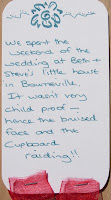 We spent the
weekend of the
wedding at Beth +
Steve's little house
in Bournville.
It wasn't very
child proof —
hence the bruised
face and the
cupboard
raiding!!